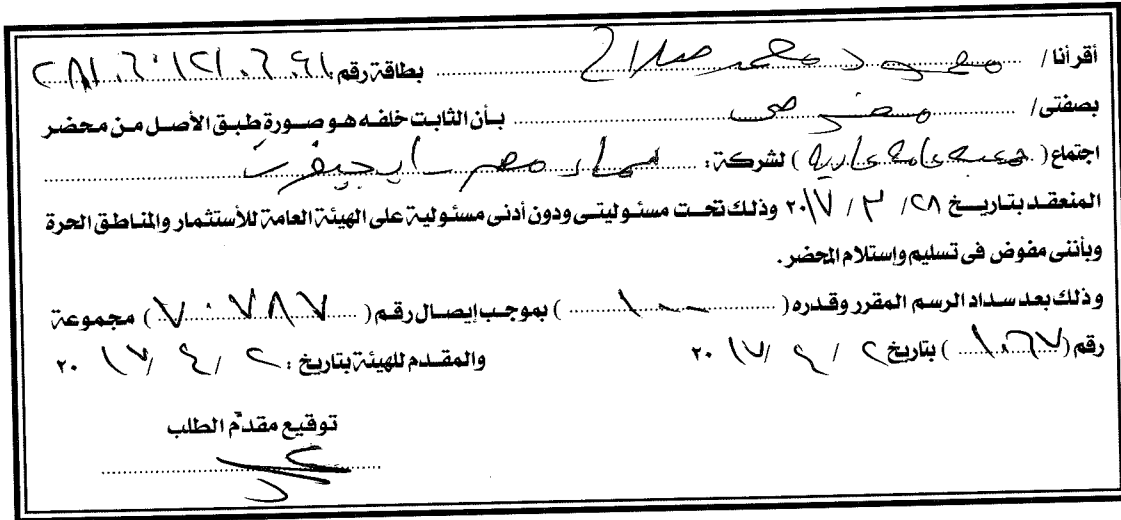 أقر أنا / محمود محمد صلاح بطاقة رقم
بصفتى / بأن الثابت خلفه هو صورة طبق الأصل من محضر
اجتماع ( جمعية عامة عادية ) لشركة : مصر
المنعقد بتاريخ ٢٨ / ٣ / ٢٠١٧ وذلك تحت مسئوليتى ودون أدنى مسئولية على الهيئة العامة للأستثمار والمناطق الحرة
وبأننى مفوض فى تسليم وإستلام المحضر .
وذلك بعد سداد الرسم المقرر وقدره ( ١٠٠ ) بموجب إيصال رقم ( ٧٠٧٨٧ ) مجموعة
رقم ( ١٠٦٧ ) بتاريخ ٢ / ٤ / ٢٠١٧ والمقدم للهيئة بتاريخ : ٢ / ٤ / ٢٠١٧
توقيع مقدم الطلب